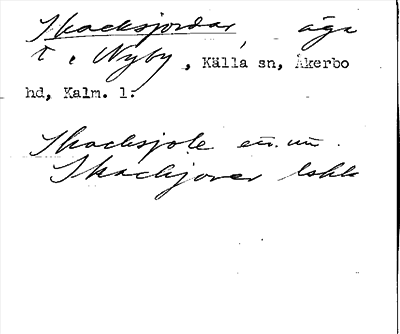 Skacksjordar, äga
t. Nyby, Källa sn, Åkerbo
hd, Kalm. l:
Skacksjole
Skackjorer lokk